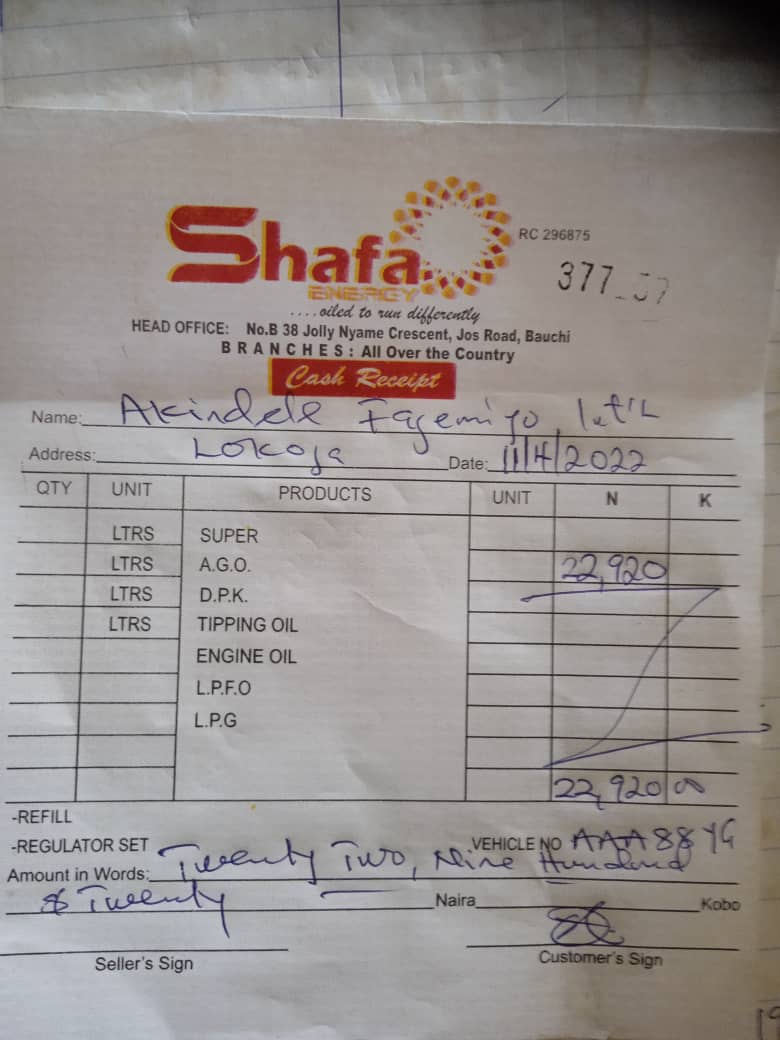 Shafa
ENERGY
RC 296875
377
....oiled to run differently
HEAD OFFICE: No.B 38 Jolly Nyame Crescent, Jos Road, Bauchi
BRANCHES: All Over the Country
Cash Receipt
Name: Akindele Fagemiyo Int'L
Address: Lokoja Date: 11/4/2022
QTY UNIT PRODUCTS UNIT N K
LTRS SUPER
LTRS A.G.O. 22,920
LTRS D.P.K.
LTRS TIPPING OIL
ENGINE OIL
L.P.F.O
L.P.G
22,920 00
-REFILL
-REGULATOR SET VEHICLE NO AAA88YG
Amount in Words: Twenty Two, Nine Hundred
& Twenty Naira Kobo
Seller's Sign Customer's Sign